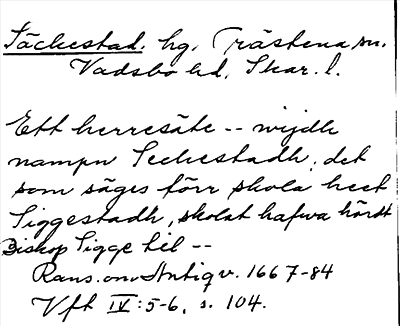 Säckestad, hg, Trästena sn.
Vadsbo hd, Skar. l.
Ett herresäte -- wijdh
nampn Seckestadh, det
som säges förr skola heet
Siggestadh, skolat hafwa hördt
Biskop Sigge til --
Rans. om Antiqv. 1667-84
Vft IV:5-6, s. 104.